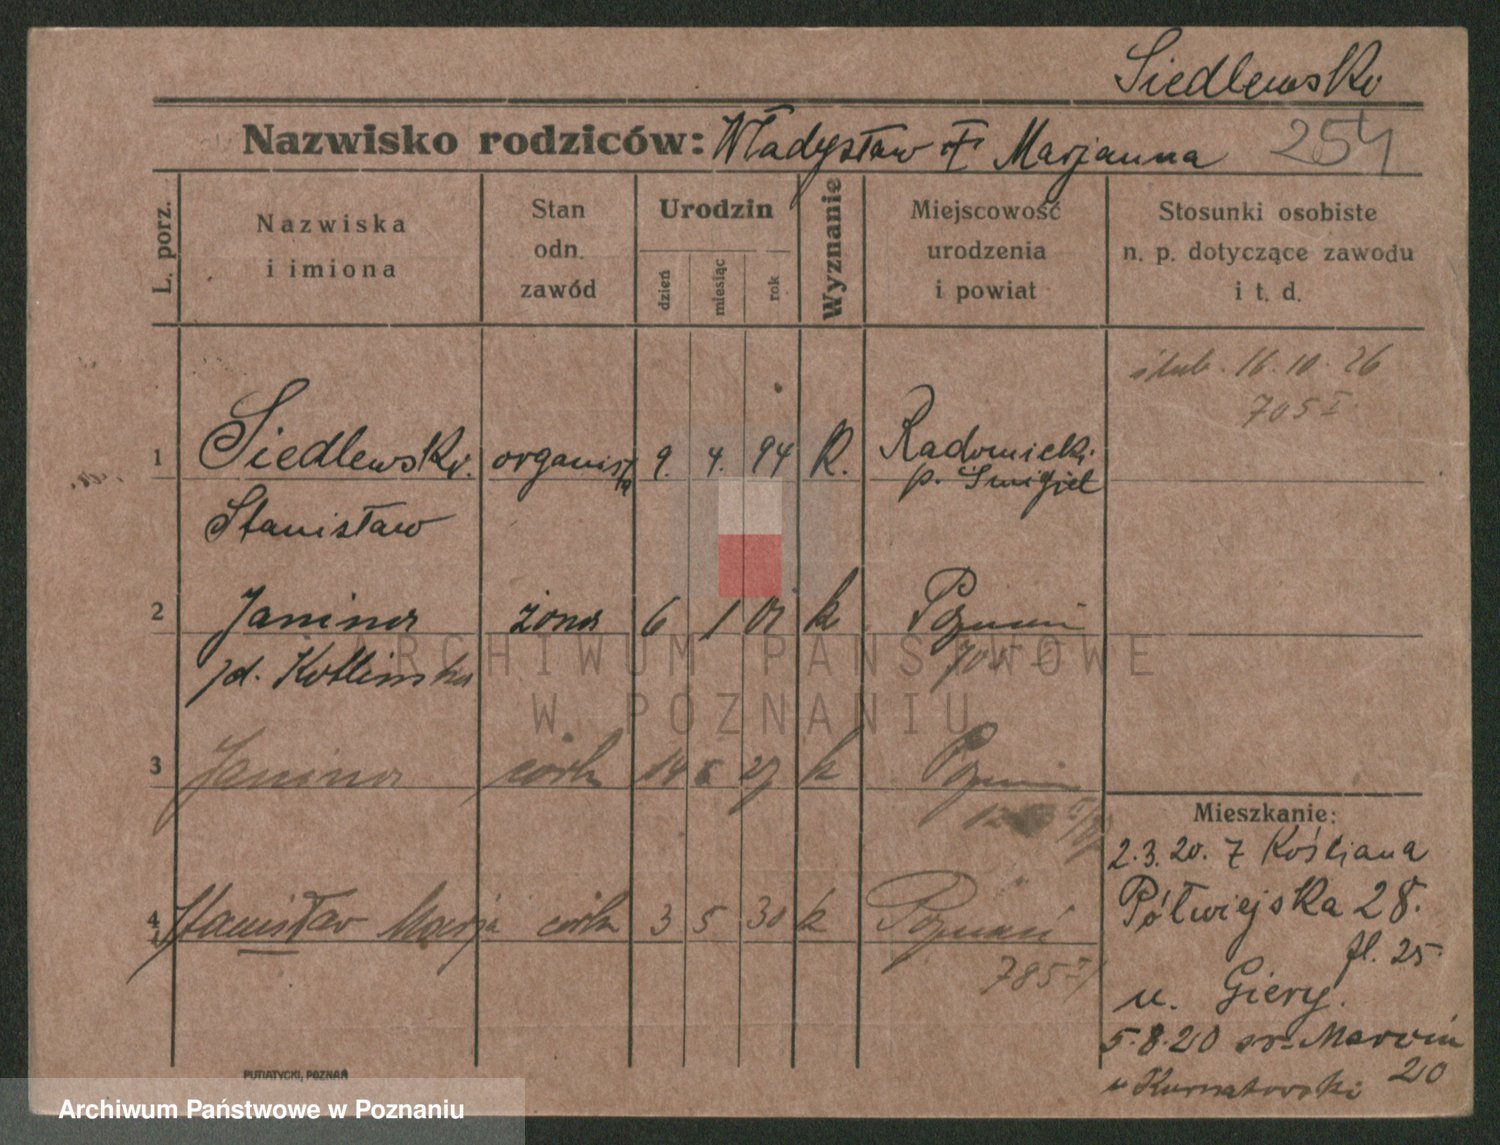 Siedlewski
Nazwisko rodziców: Władysław Marjanna 254
L. porz.
Nazwiska i imiona
Stan odn. zawód
Urodzin
dzień
miesiąc
rok
Wyznanie
Miejscowość urodzenia i powiat
Stosunki osobiste n. p. dotyczące zawodu i t. d.
ślub. 16.10.26
705 I.
1 Siedlewski organista 9. 4. 94 R. Radomicki
p. Śmigiel
Stanisław
2 Janina żona 6 1 01 k Poznań
/d. Kotlinska 705
3 Janina córka 14 27 k Poznań
Mieszkanie:
2.3.20. z Kościana
Półwiejska 28.
fl. 25
u. Giery.
5.8.20 Marcin
20
u Kurnatowski
4 Stanisław Marja córka 3 5 30 k Poznań
785 I/
PUTIATYCKI, POZNAŃ
ARCHIWUM PAŃSTWOWE
W POZNANIU
Archiwum Państwowe w Poznaniu